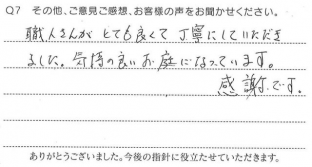 Q7 その他、ご意見ご感想、お客様の声をお聞かせください。
職人さんが とても良くて 丁寧にしていただき
ました。気持の良いお庭になっています。
感謝です。
ありがとうございました。今後の指針に役立たせていただきます。